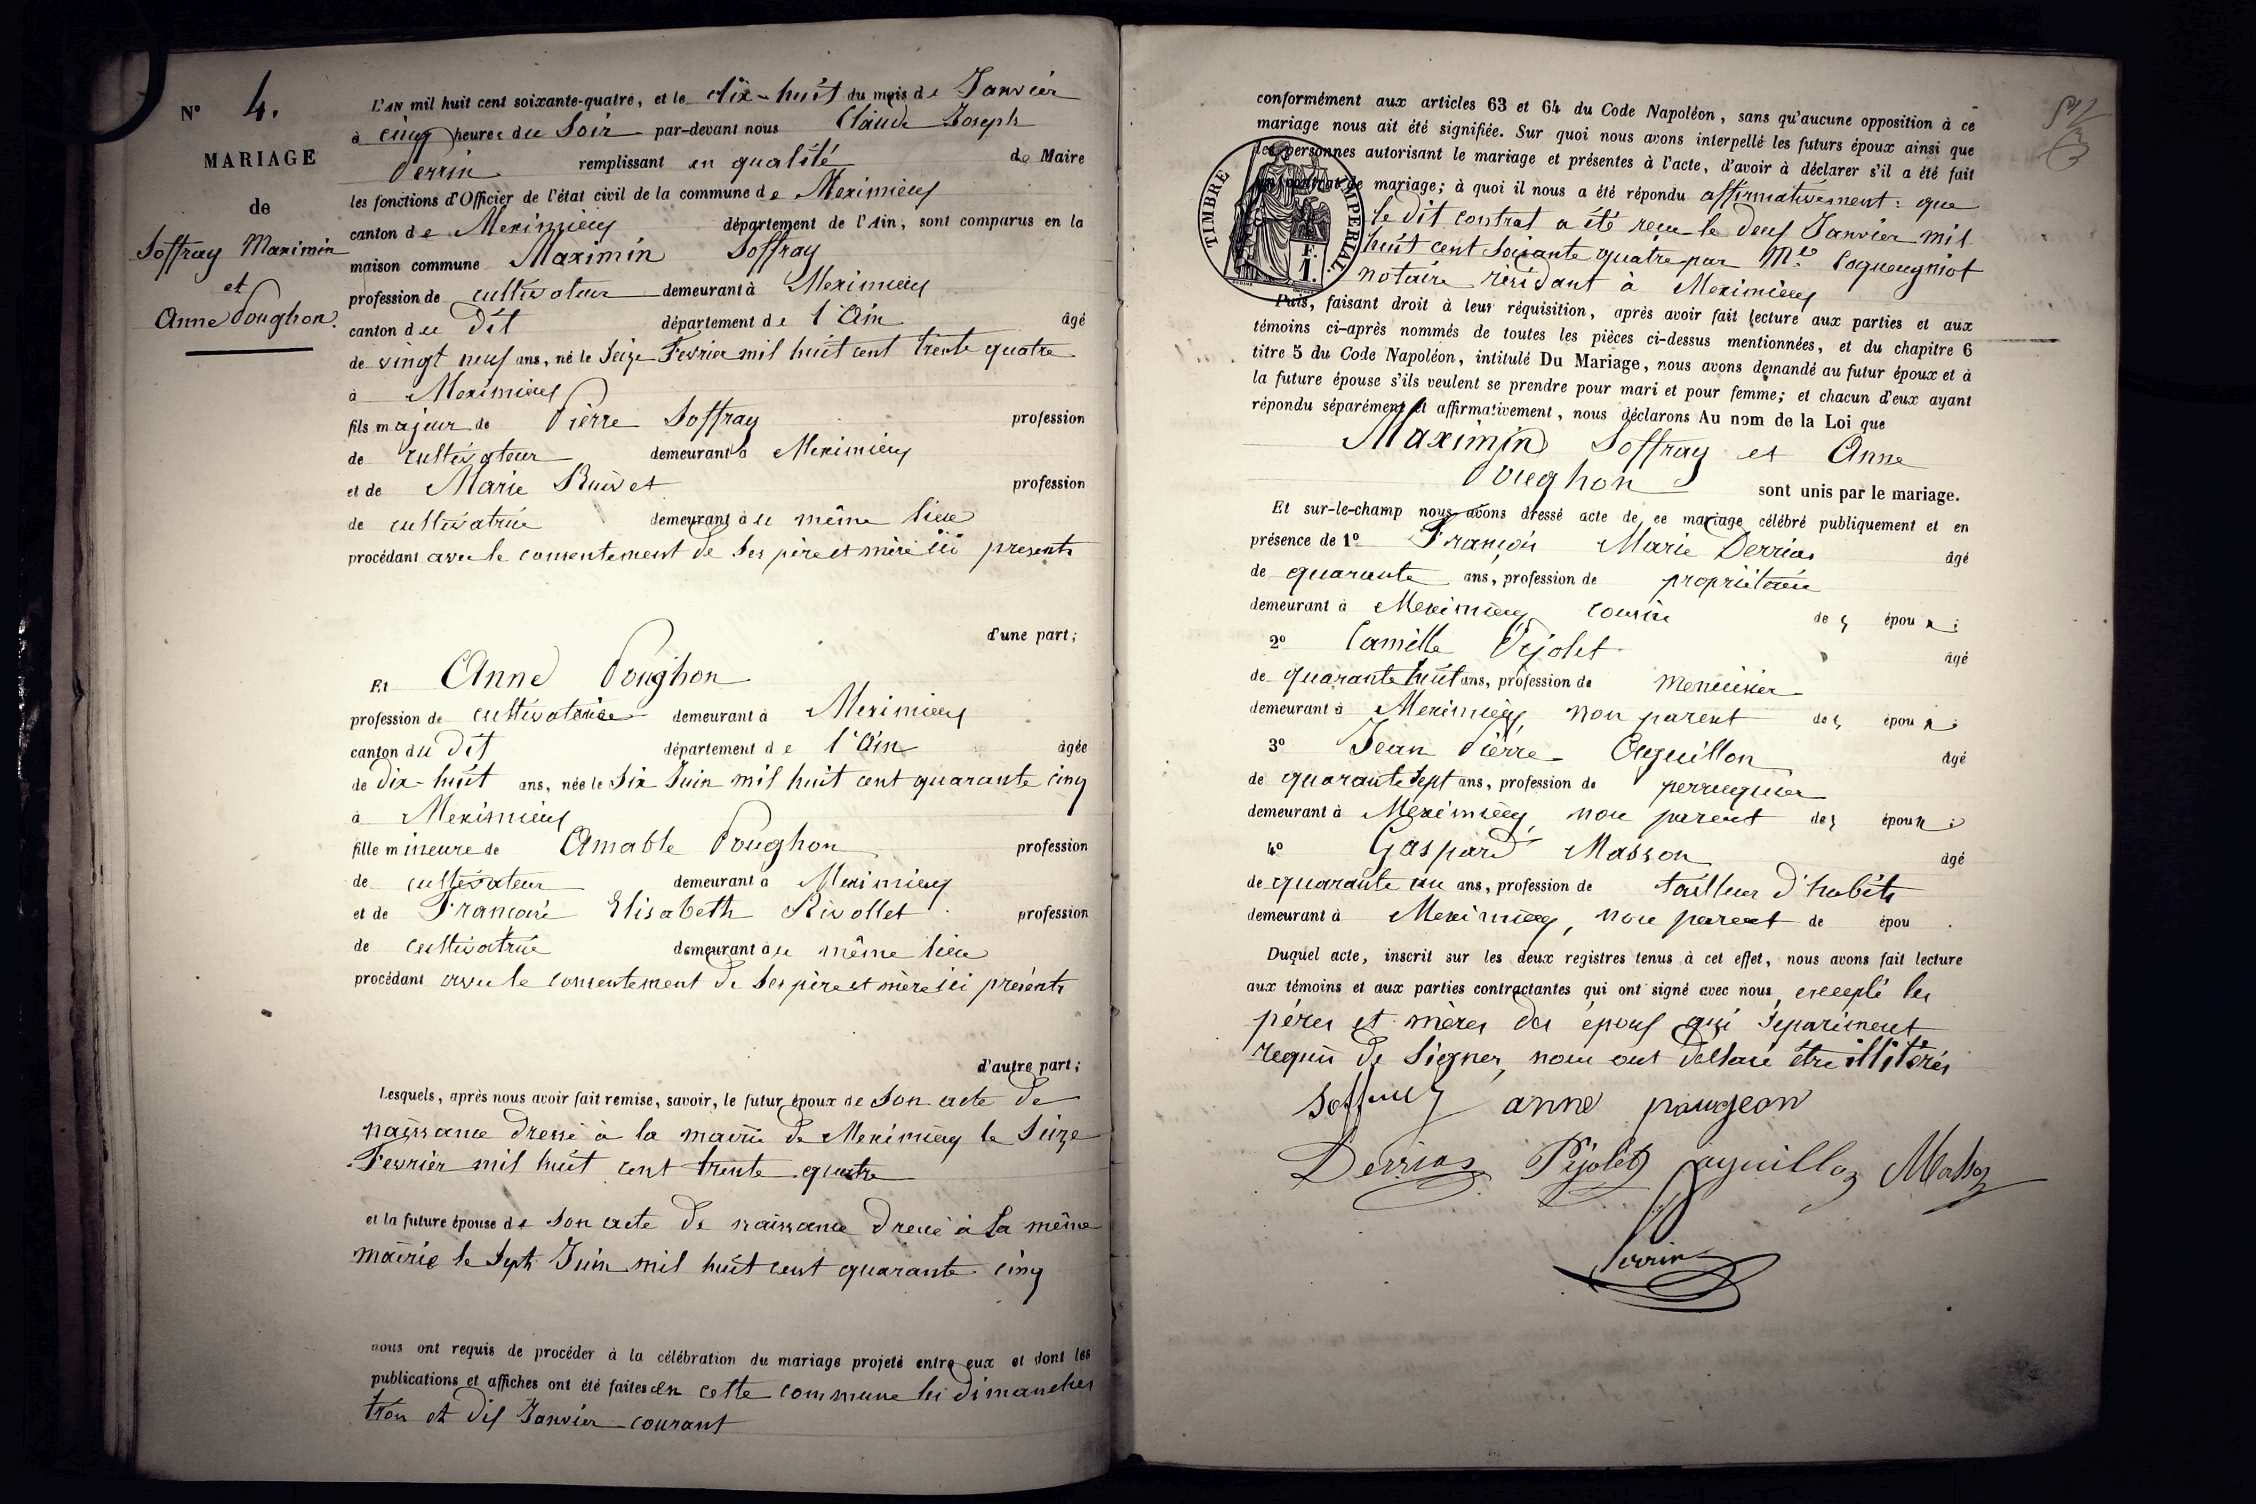 N° 4.
MARIAGE
de
Soffray Maximin
et
Anne Poughon.
L'AN mil huit cent soixante-quatre, et le dix-huit du mois de Janvier
à cinq heures du Soir par-devant nous Claude Joseph
Perrin remplissant en qualité de Maire
les fonctions d'Officier de l'état civil de la commune de Meximieux
canton de Meximieux département de l'Ain, sont comparus en la
maison commune Maximin Soffray
profession de cultivateur demeurant à Meximieux
canton du dit département de l'Ain âgé
de vingt neuf ans, né le Seize Fevrier mil huit cent trente quatre
à Meximieux
fils majeur de Pierre Soffray profession
de cultivateur demeurant à Meximieux
et de Marie Ruivet profession
de cultivatrice demeurant au même lieu
procédant avec le consentement de ses père et mère ici présents
d'une part;
Et Anne Poughon
profession de cultivatrice demeurant à Meximieux
canton du dit département de l'Ain âgée
de dix-huit ans, née le Six Juin mil huit cent quarante cinq
à Meximieux
fille mineure de Amable Poughon profession
de cultivateur demeurant à Meximieux
et de Francoise Elisabeth Rivollet profession
de cultivatrice demeurant au même lieu
procédant avec le consentement de ses père et mère ici présents
d'autre part;
Lesquels, après nous avoir fait remise, savoir, le futur époux de son acte de
naissance dressé à la mairie de Meximieux le Seize
Fevrier mil huit cent trente quatre
et la future épouse de son acte de naissance dressé à la même
mairie le Sept Juin mil huit cent quarante cinq
nous ont requis de procéder à la célébration du mariage projeté entre eux et dont les
publications et affiches ont été faites en cette commune les dimanches
trois et dix Janvier courant
conformément aux articles 63 et 64 du Code Napoléon, sans qu'aucune opposition à ce
mariage nous ait été signifiée. Sur quoi nous avons interpellé les futurs époux ainsi que
les personnes autorisant le mariage et présentes à l'acte, d'avoir à déclarer s'il a été fait
un contrat de mariage; à quoi il nous a été répondu affirmativement: que
le dit contrat a été reçu le deux Janvier mil
huit cent soixante quatre par Me Coqueugniot
notaire résidant à Meximieux
TIMBRE IMPERIAL.
F.
1.
Puis, faisant droit à leur réquisition, après avoir fait lecture aux parties et aux
témoins ci-après nommés de toutes les pièces ci-dessus mentionnées, et du chapitre 6
titre 5 du Code Napoléon, intitulé Du Mariage, nous avons demandé au futur époux et à
la future épouse s'ils veulent se prendre pour mari et pour femme; et chacun d'eux ayant
répondu séparément et affirmativement, nous déclarons Au nom de la Loi que
Maximin Soffray et Anne
Poughon sont unis par le mariage.
Et sur-le-champ nous avons dressé acte de ce mariage célébré publiquement et en
présence de 1° François Marie Derrias âgé
de quarante ans, profession de propriétaire
demeurant à Meximieux cousin des époux;
2° Camille Pijolet âgé
de quarante huit ans, profession de menuisier
demeurant à Meximieux, non parent des époux;
3° Jean Pierre Aguillon âgé
de quarante sept ans, profession de perruquier
demeurant à Meximieux, non parent des époux;
4° Gaspard Masson âgé
de quarante un ans, profession de tailleur d'habits
demeurant à Meximieux, non parent de épou .
Duquel acte, inscrit sur les deux registres tenus à cet effet, nous avons fait lecture
aux témoins et aux parties contractantes qui ont signé avec nous, excepté les
pères et mères des époux qui séparément
requis de signer, nous ont déclaré être illitérés
Soffray anne pougeon
Derrias Pijolet aguillon Masson
Perrin